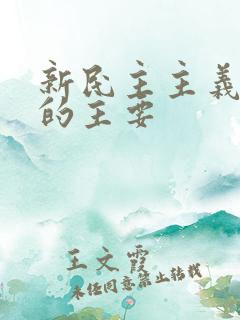 新民主主義
的王安
王文霞
未经同意禁止转载